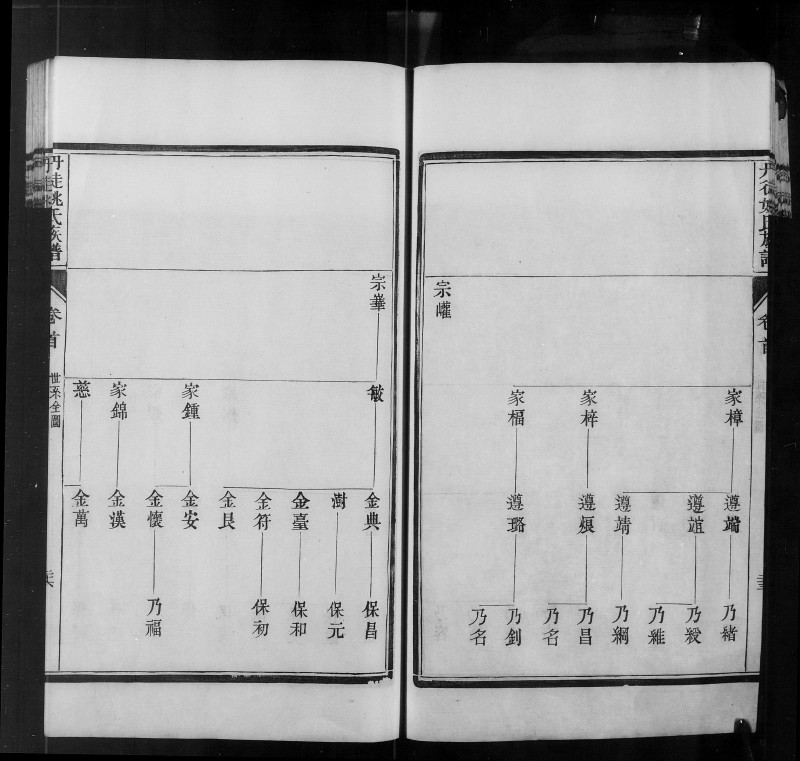 卷首
宗㰌
家樟
家梓
家楅
遵端
遵誼
遵靖
遵
遵璐
乃緒
乃綬
乃維
乃綱
乃昌
乃名
乃釗
乃名
丹徒姚氏族譜
卷首
世系全圖
宗華
敏
家鍾
家錦
慈
金典
澍
金臺
金符
金艮
金安
金懷
金漢
金萬
保昌
保元
保和
保初
乃福